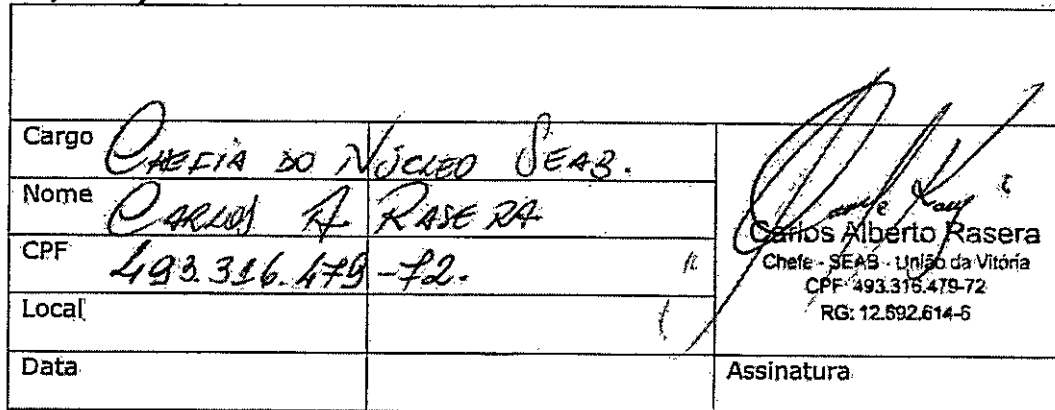 Cargo CHEFIA DO NÚCLEO SEAB.
Nome CARLOS A. RASERA
CPF 493.316.479-72.
Local
Data
Carlos Alberto Rasera
Chefe - SEAB - União da Vitória
CPF: 493.316.479-72
RG: 12.692.614-6
Assinatura